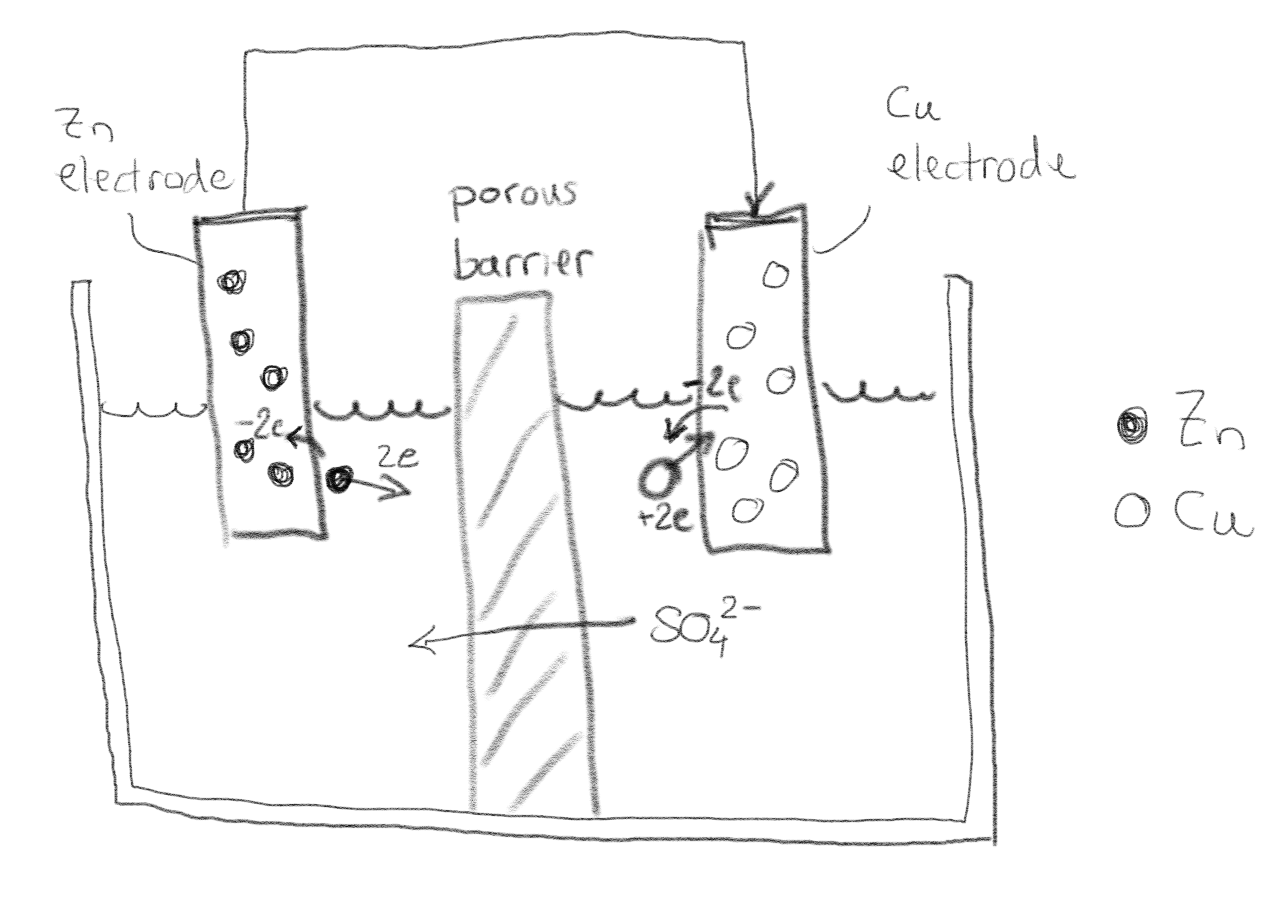 Zn
electrode
porous
barrier
Cu
electrode
-2e
2e
-2e
+2e
SO₄²⁻
Zn
Cu